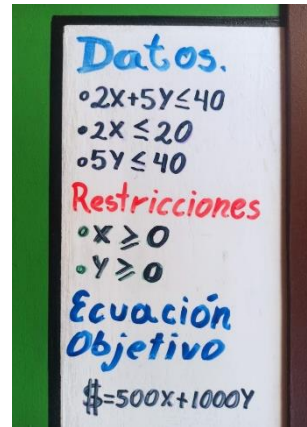 Datos.
•2X+5Y≤40
•2X≤20
•5Y≤40
Restricciones
•X≥0
•Y≥0
Ecuación
Objetivo
$=500X+1000Y